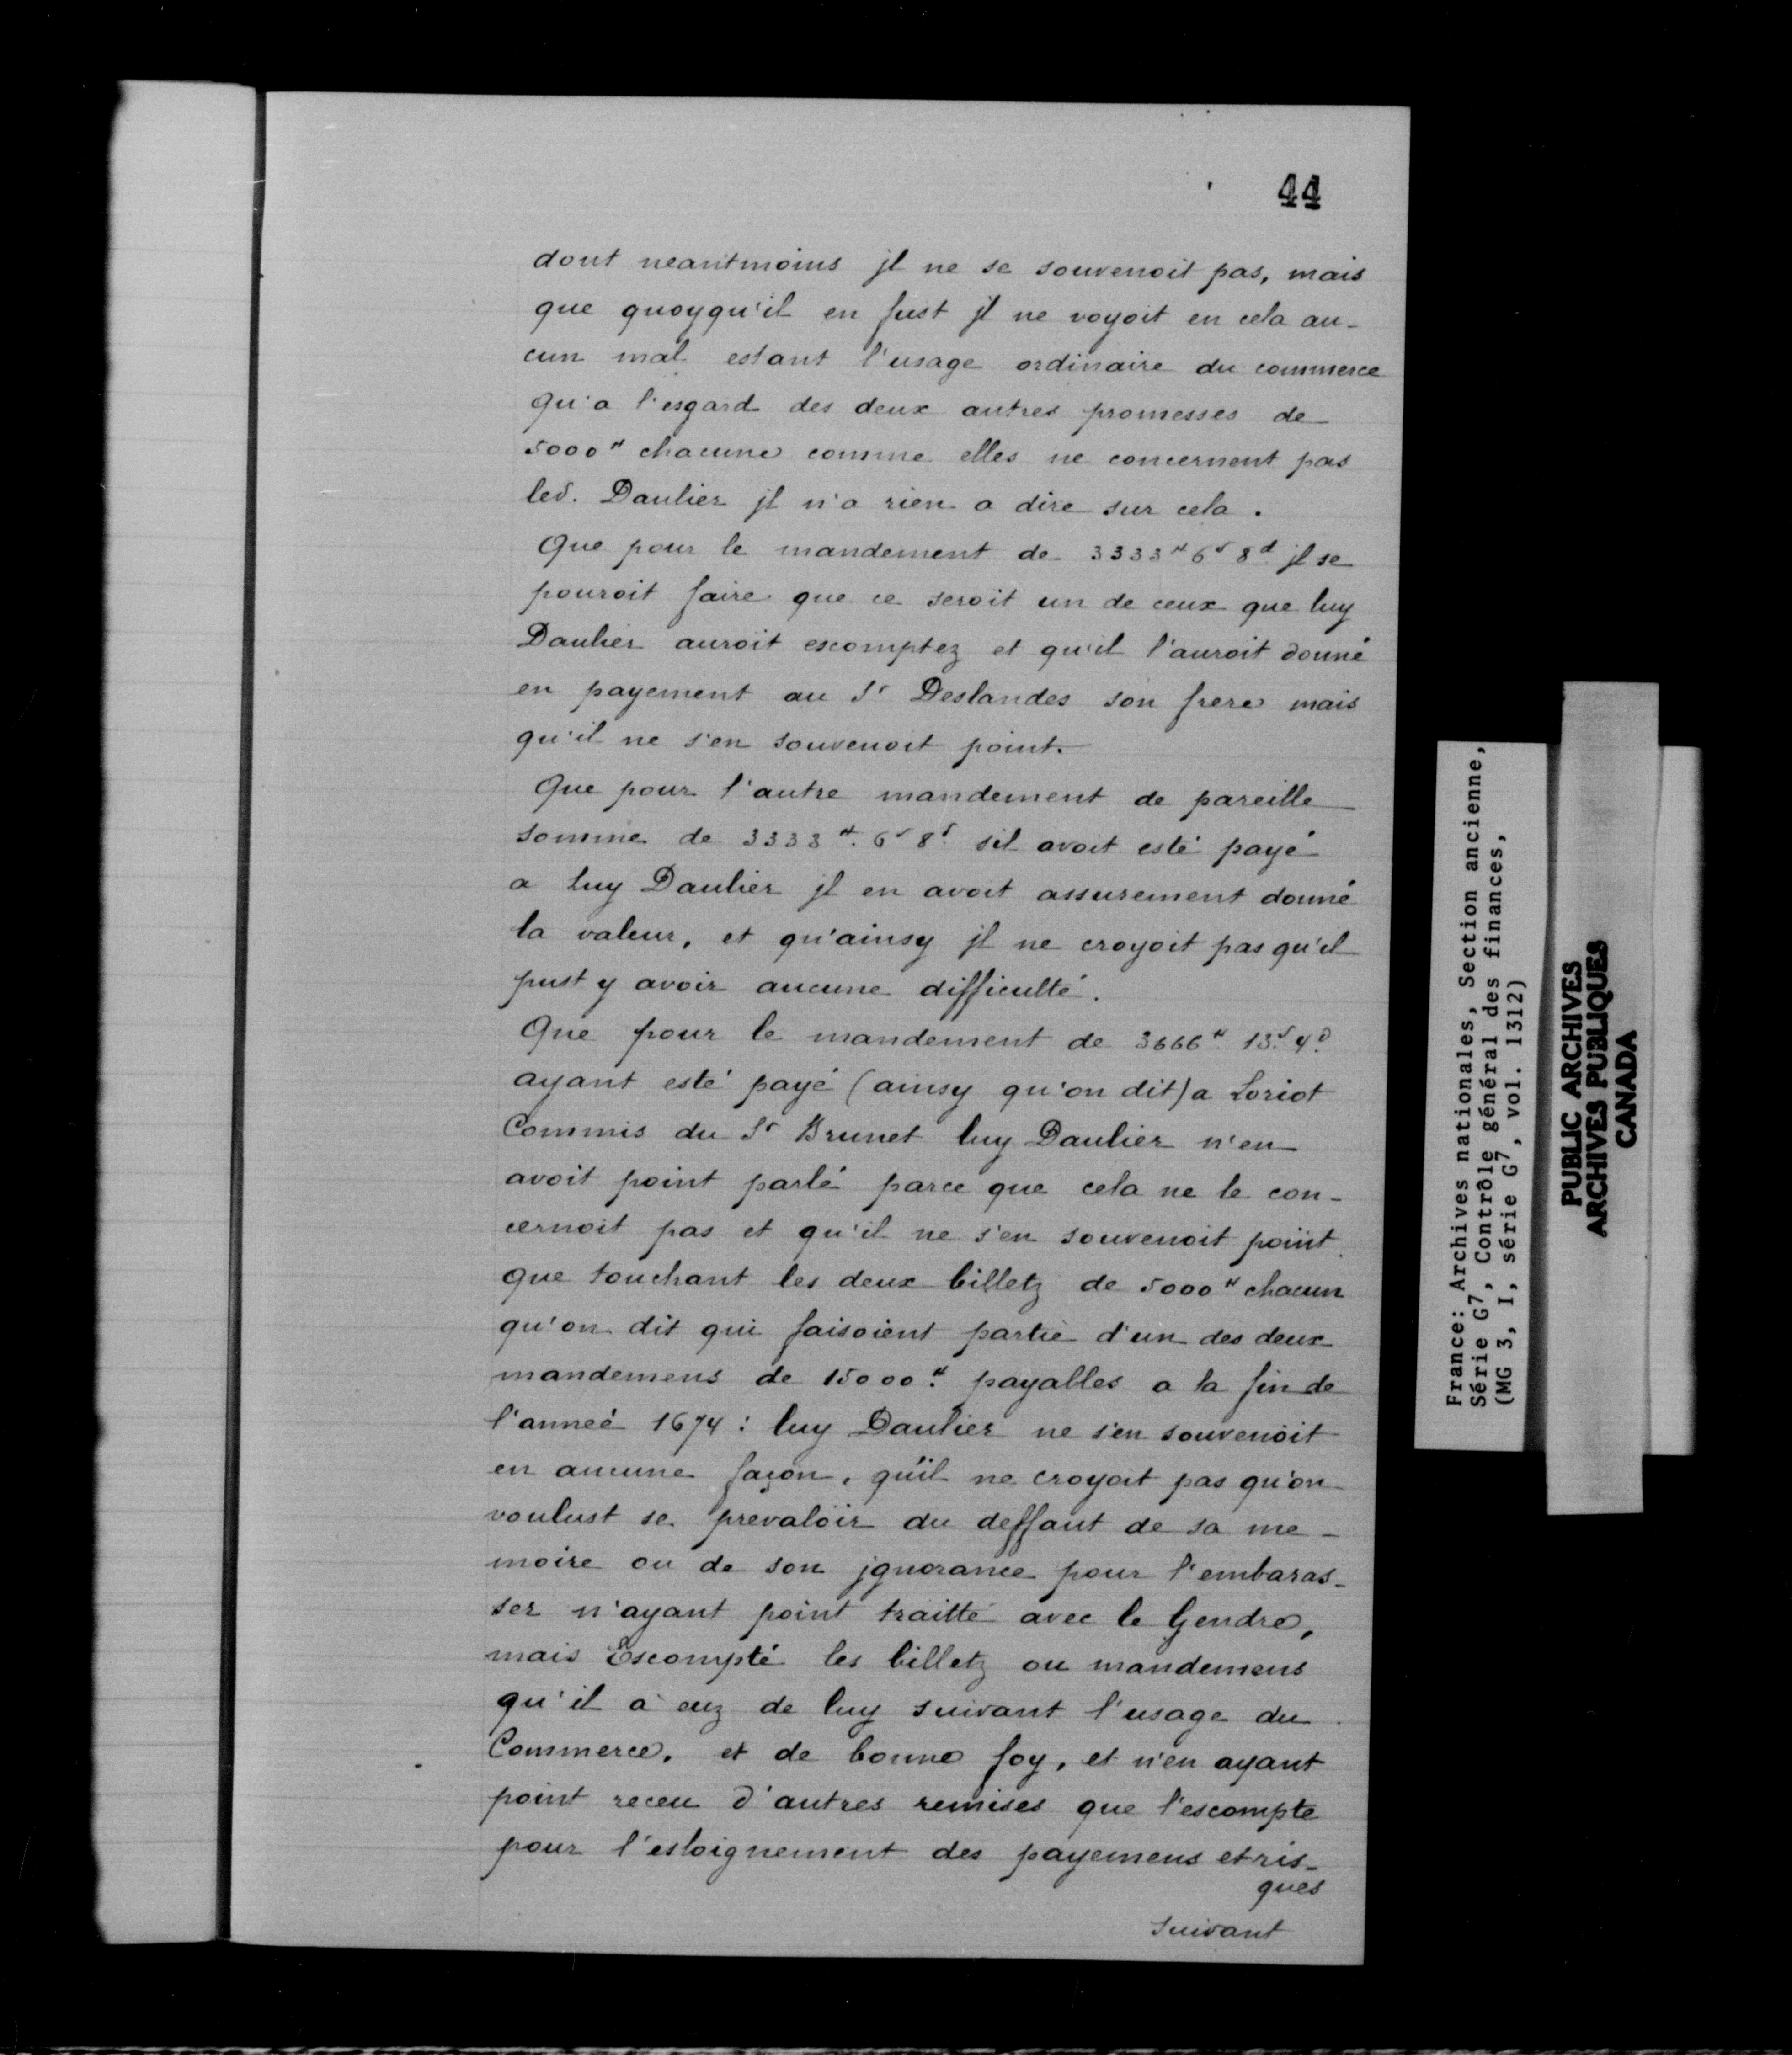 44
dont neantmoins jl ne se souvenoit pas, mais
que quoyqu'il en fust jl ne voyoit en cela au-
cun mal estant l'usage ordinaire du commerce
qu'a l'esgard des deux autres promesses de
5000tt chacune comme elles ne concernent pas
led. Daulier jl n'a rien a dire sur cela.
Que pour le mandement de 3333tt 6s 8d jl se
pouroit faire que ce seroit un de ceux que luy
Daulier auroit escomptez et qu'il l'auroit donné
en payement au Sr Deslandes son frere mais
qu'il ne s'en souvenoit point.
Que pour l'autre mandement de pareille
somme de 3333tt. 6s 8d. sil avoit esté payé
a luy Daulier jl en avoit assurement donné
la valeur, et qu'ainsy jl ne croyoit pas qu'il
pust y avoir aucune difficulté.
Que pour le mandement de 3666tt 13s. 4d.
ayant esté payé (ainsy qu'on dit) a Loriot
Commis du Sr Brunet luy Daulier n'en
avoit point parlé parce que cela ne le con-
cernoit pas et qu'il ne s'en souvenoit point.
que touchant les deux billetz de 5000tt chacun
qu'on dit qui faisoient partie d'un des deux
mandemens de 15000tt. payables a la fin de
l'anneé 1674: luy Daulier ne s'en souvenoit
en aucune façon, qu'il ne croyoit pas qu'on
voulust se prevaloir du deffaut de sa me-
moire ou de son jgnorance pour l'embaras-
ser n'ayant point traitté avec le Gendre,
mais Escompté les billetz ou mandemens
qu'il a euz de luy suivant l'usage du
Commerce, et de bonne foy, et n'en ayant
point receu d'autres remises que l'escompte
pour l'esloignement des payemens et ris-
ques
suivant
France: Archives nationales, Section ancienne,
Série G7, Contrôle général des finances,
(MG 3, I, série G7, vol. 1312)
PUBLIC ARCHIVES
ARCHIVES PUBLIQUES
CANADA